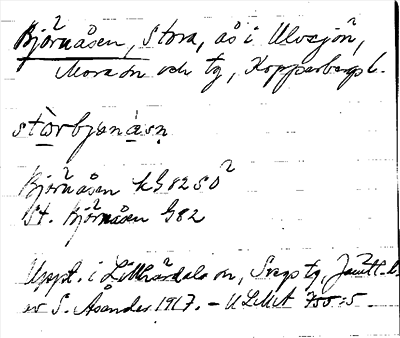 Björnåsen, Stora, ås i Ulvsjön,
Mora sn och tg, Kopparbergs l.
stòrbjɵnàsṇ
Björnåsen kG82SO
St. Björnåsen G82
Uppt. i Lillhärdals sn, Svegs tg, Jämtl. l.
av S. Åsander 1917. – ULMA 755:5.